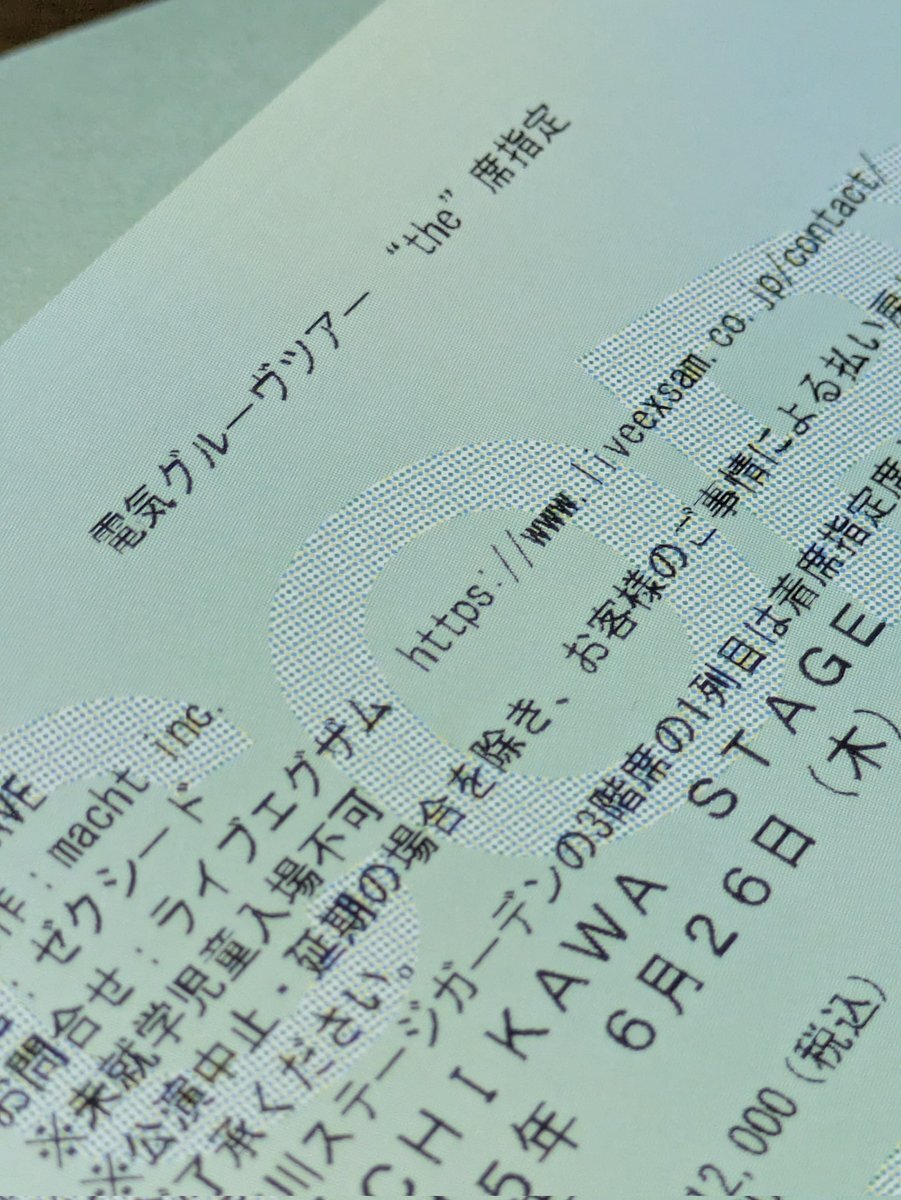 電気グルーヴツアー “the” 席指定
作：macht inc.
：ゼクシード
お問合せ：ライブエグザム https://www.liveexsam.co.jp/contact/
※未就学児童入場不可
※公演中止・延期の場合を除き、お客様のご事情による払い戻
了承ください。
川ステージガーデンの3階席の1列目は着席指定席
CHIKAWA STAGE
5年 6月26日（木）
12,000（税込）